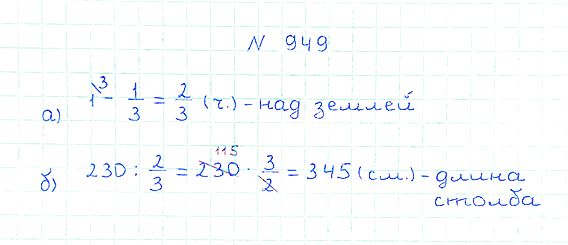 N 949
а) 1 ³ - 1/3 = 2/3 (ч.) - над землей
б) 230 : 2/3 = 230 115 · 3/2 = 345 (см.) - длина
столба